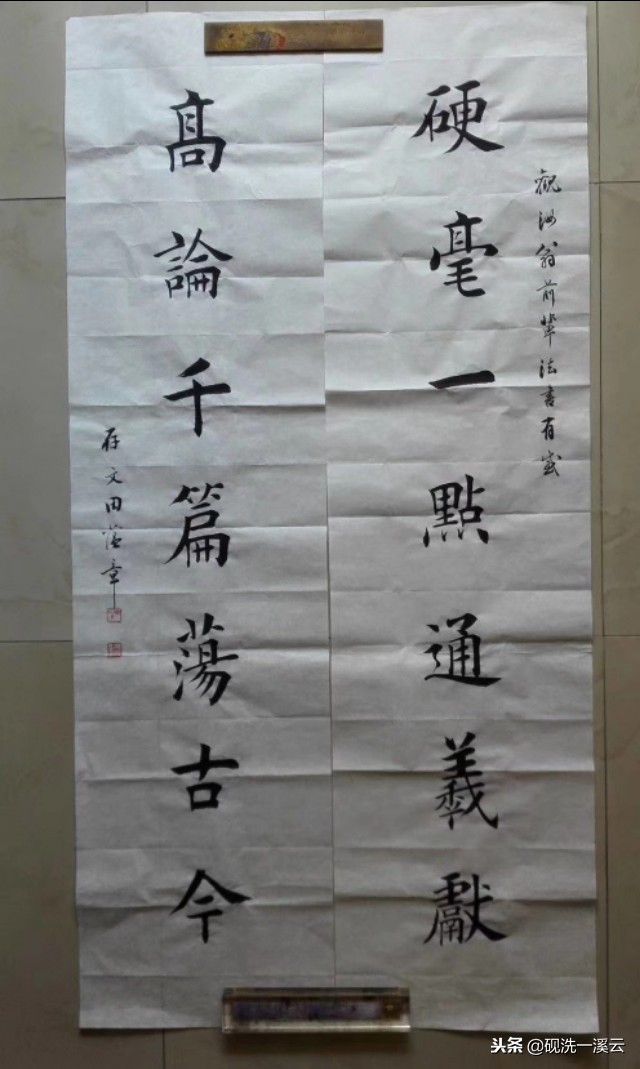 觀翁前輩法書有感
硬毫一點通羲獻
髙論千篇蕩古今
存文田蘊章
头条@砚洗一溪云